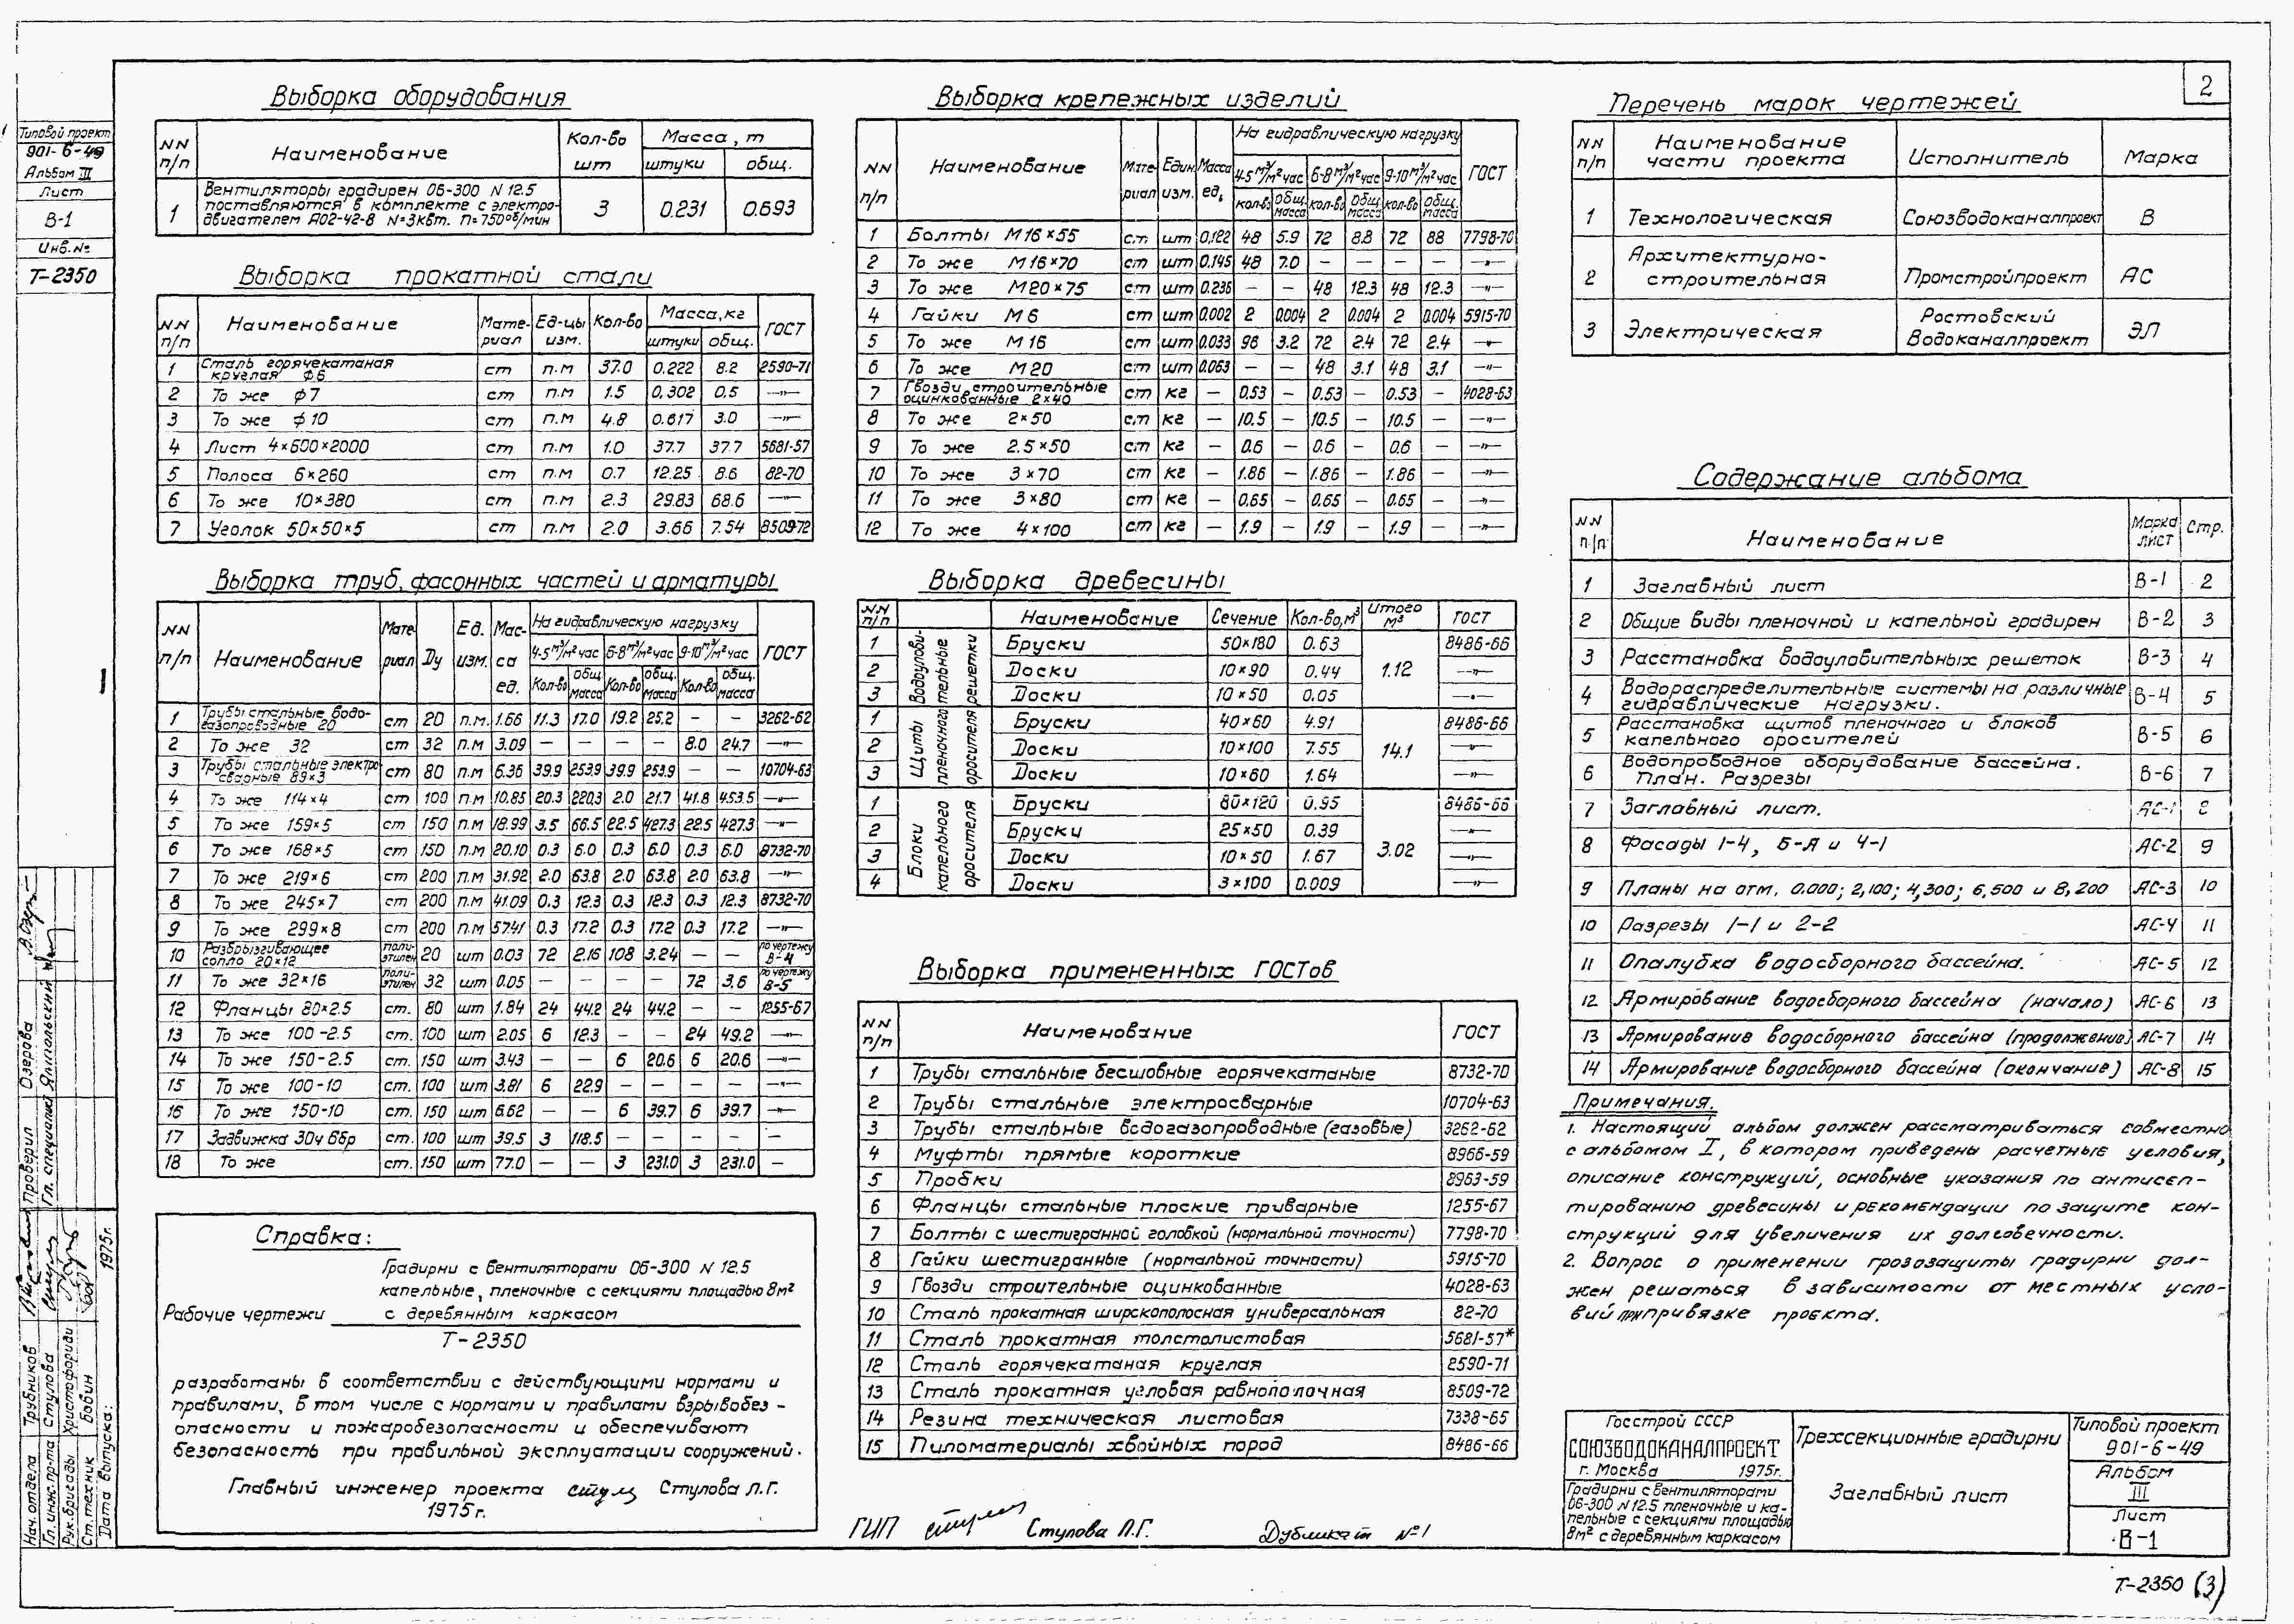 2
Типовой проект
901-6-49
Альбом III
Лист
В-1
Инв.№
Т-2350
Выборка оборудования
NN п/п | Наименование | Кол-во шт | Масса, т
штуки | общ.
1 | Вентиляторы градирен 06-300 N 12.5 поставляются в комплекте с электродвигателем А02-42-8 N=3квт. n=750об/мин | 3 | 0.231 | 0.693
Выборка прокатной стали
NN п/п | Наименование | Материал | Ед-цы изм. | Кол-во | Масса, кг | ГОСТ
штуки | общ.
1 | Сталь горячекатаная круглая ф6 | ст | п.м | 37.0 | 0.222 | 8.2 | 2590-71
2 | То же ф7 | ст | п.м | 1.5 | 0,302 | 0.5 | —"—
3 | То же ф10 | ст | п.м | 4.8 | 0.617 | 3.0 | —"—
4 | Лист 4×600×2000 | ст | п.м | 1.0 | 37.7 | 37.7 | 5681-57
5 | Полоса 6×260 | ст | п.м | 0.7 | 12.25 | 8.6 | 82-70
6 | То же 10×380 | ст | п.м | 2.3 | 29.83 | 68.6 | —"—
7 | Уголок 50×50×5 | ст | п.м | 2.0 | 3.66 | 7.54 | 8509-72
Выборка труб, фасонных частей и арматуры
NN п/п | Наименование | Материал | Ду | Ед. изм. | Масса ед. | На гидравлическую нагрузку | ГОСТ
4-5 м³/м² час | 6-8 м³/м² час | 9-10 м³/м² час
Кол-во | общ. масса | Кол-во | общ. масса | Кол-во | общ. масса
1 | Трубы стальные водогазопроводные 20 | ст | 20 | п.м. | 1.66 | 11.3 | 17.0 | 19.2 | 25.2 | — | — | 3262-62
2 | То же 32 | ст | 32 | п.м | 3.09 | — | — | — | — | 8.0 | 24.7 | —"—
3 | Трубы стальные электросварные 89×3 | ст | 80 | п.м | 6.36 | 39.9 | 253.9 | 39.9 | 253.9 | — | — | 10704-63
4 | То же 114×4 | ст | 100 | п.м | 10.85 | 20.3 | 220.3 | 2.0 | 21.7 | 41.8 | 453.5 | —"—
5 | То же 159×5 | ст | 150 | п.м | 18.99 | 3.5 | 66.5 | 22.5 | 427.3 | 22.5 | 427.3 | —"—
6 | То же 168×5 | ст | 150 | п.м | 20.10 | 0.3 | 6.0 | 0.3 | 6.0 | 0.3 | 6.0 | 8732-70
7 | То же 219×6 | ст | 200 | п.м | 31.92 | 2.0 | 63.8 | 2.0 | 63.8 | 2.0 | 63.8 | —"—
8 | То же 245×7 | ст | 200 | п.м | 41.09 | 0.3 | 12.3 | 0.3 | 12.3 | 0.3 | 12.3 | 8732-70
9 | То же 299×8 | ст | 200 | п.м | 57.41 | 0.3 | 17.2 | 0.3 | 17.2 | 0.3 | 17.2 | —"—
10 | Разбрызгивающее сопло 20×12 | полиэтилен | 20 | шт | 0.03 | 72 | 2.16 | 108 | 3.24 | — | — | по чертежу В-4
11 | То же 32×16 | полиэтилен | 32 | шт | 0.05 | — | — | — | — | 72 | 3.6 | по чертежу В-5
12 | Фланцы 80×2.5 | ст. | 80 | шт | 1.84 | 24 | 44.2 | 24 | 44.2 | — | — | 1255-67
13 | То же 100-2.5 | ст. | 100 | шт | 2.05 | 6 | 12.3 | — | — | 24 | 49.2 | —"—
14 | То же 150-2.5 | ст. | 150 | шт | 3.43 | — | — | 6 | 20.6 | 6 | 20.6 | —"—
15 | То же 100-10 | ст. | 100 | шт | 3.81 | 6 | 22.9 | — | — | — | — | —"—
16 | То же 150-10 | ст. | 150 | шт | 6.62 | — | — | 6 | 39.7 | 6 | 39.7 | —"—
17 | Задвижка 30ч 6бр | ст. | 100 | шт | 39.5 | 3 | 118.5 | — | — | — | — | —
18 | То же | ст. | 150 | шт | 77.0 | — | — | 3 | 231.0 | 3 | 231.0 | —
Справка:
Градирни с вентиляторами 06-300 N 12.5
капельные, пленочные с секциями площадью 8м²
Рабочие чертежи с деревянным каркасом
Т-2350
разработаны в соответствии с действующими нормами и
правилами, в том числе с нормами и правилами взрывобез-
опасности и пожаробезопасности и обеспечивают
безопасность при правильной эксплуатации сооружений.
Главный инженер проекта Стулова Л.Г.
1975г.
Выборка крепежных изделий
NN п/п | Наименование | Материал | Един. изм. | Масса ед. | На гидравлическую нагрузку | ГОСТ
4-5 м³/м² час | 6-8 м³/м² час | 9-10 м³/м² час
кол-во | общ. масса | кол-во | общ. масса | кол-во | общ. масса
1 | Болты М16×55 | ст. | шт | 0.122 | 48 | 5.9 | 72 | 8.8 | 72 | 88 | 7798-70
2 | То же М16×70 | ст | шт | 0.145 | 48 | 7.0 | — | — | — | — | —"—
3 | То же М20×75 | ст | шт | 0.236 | — | — | 48 | 12.3 | 48 | 12.3 | —"—
4 | Гайки М6 | ст | шт | 0.002 | 2 | 0.004 | 2 | 0.004 | 2 | 0.004 | 5915-70
5 | То же М16 | ст | шт | 0.033 | 96 | 3.2 | 72 | 2.4 | 72 | 2.4 | —"—
6 | То же М20 | ст | шт | 0.063 | — | — | 48 | 3.1 | 48 | 3.1 | —"—
7 | Гвозди строительные оцинкованные 2×40 | ст | кг | — | 0.53 | — | 0.53 | — | 0.53 | — | 4028-63
8 | То же 2×50 | ст | кг | — | 10.5 | — | 10.5 | — | 10.5 | — | —"—
9 | То же 2.5×50 | ст | кг | — | 0.6 | — | 0.6 | — | 0.6 | — | —"—
10 | То же 3×70 | ст | кг | — | 1.86 | — | 1.86 | — | 1.86 | — | —"—
11 | То же 3×80 | ст | кг | — | 0.65 | — | 0.65 | — | 0.65 | — | —"—
12 | То же 4×100 | ст | кг | — | 1.9 | — | 1.9 | — | 1.9 | — | —"—
Выборка древесины
NN п/п | Наименование | Сечение | Кол-во, м³ | Итого м³ | ГОСТ
Водоуловительные решетки
1 | Бруски | 50×180 | 0.63 | 1.12 | 8486-66
2 | Доски | 10×90 | 0.44 | —"—
3 | Доски | 10×50 | 0.05 | —"—
Щиты пленочного оросителя
1 | Бруски | 40×60 | 4.91 | 14.1 | 8486-66
2 | Доски | 10×100 | 7.55 | —"—
3 | Доски | 10×60 | 1.64 | —"—
Блоки капельного оросителя
1 | Бруски | 80×120 | 0.95 | 3.02 | 8486-66
2 | Бруски | 25×50 | 0.39 | —"—
3 | Доски | 10×50 | 1.67 | —"—
4 | Доски | 3×100 | 0.009 | —"—
Выборка примененных ГОСТов
NN п/п | Наименование | ГОСТ
1 | Трубы стальные бесшовные горячекатаные | 8732-70
2 | Трубы стальные электросварные | 10704-63
3 | Трубы стальные водогазопроводные (газовые) | 3262-62
4 | Муфты прямые короткие | 8966-59
5 | Пробки | 8963-59
6 | Фланцы стальные плоские приварные | 1255-67
7 | Болты с шестигранной головкой (нормальной точности) | 7798-70
8 | Гайки шестигранные (нормальной точности) | 5915-70
9 | Гвозди строительные оцинкованные | 4028-63
10 | Сталь прокатная широкополосная универсальная | 82-70
11 | Сталь прокатная толстолистовая | 5681-57*
12 | Сталь горячекатаная круглая | 2590-71
13 | Сталь прокатная угловая равнополочная | 8509-72
14 | Резина техническая листовая | 7338-65
15 | Пиломатериалы хвойных пород | 8486-66
ГИП Стулова Л.Г. Дубликат №1
Перечень марок чертежей
NN п/п | Наименование части проекта | Исполнитель | Марка
1 | Технологическая | Союзводоканалпроект | В
2 | Архитектурно-строительная | Промстройпроект | АС
3 | Электрическая | Ростовский Водоканалпроект | ЭЛ
Содержание альбома
NN п/п | Наименование | Марка лист | Стр.
1 | Заглавный лист | В-1 | 2
2 | Общие виды пленочной и капельной градирен | В-2 | 3
3 | Расстановка водоуловительных решеток | В-3 | 4
4 | Водораспределительные системы на различные гидравлические нагрузки. | В-4 | 5
5 | Расстановка щитов пленочного и блоков капельного оросителей | В-5 | 6
6 | Водопроводное оборудование бассейна. План. Разрезы | В-6 | 7
7 | Заглавный лист. | АС-1 | 8
8 | Фасады 1-4, Б-А и 4-1 | АС-2 | 9
9 | Планы на отм. 0.000; 2,100; 4,300; 6,500 и 8,200 | АС-3 | 10
10 | Разрезы 1-1 и 2-2 | АС-4 | 11
11 | Опалубка водосборного бассейна. | АС-5 | 12
12 | Армирование водосборного бассейна (начало) | АС-6 | 13
13 | Армирование водосборного бассейна (продолжение) | АС-7 | 14
14 | Армирование водосборного бассейна (окончание) | АС-8 | 15
Примечания.
1. Настоящий альбом должен рассматриваться совместно
с альбомом I, в котором приведены расчетные условия,
описание конструкций, основные указания по антисеп-
тированию древесины и рекомендации по защите кон-
струкций для увеличения их долговечности.
2. Вопрос о применении грозозащиты градирни дол-
жен решаться в зависимости от местных усло-
вий при привязке проекта.
Госстрой СССР
СОЮЗВОДОКАНАЛПРОЕКТ
г. Москва 1975г.
Градирни с вентиляторами
06-300 N 12.5 пленочные и ка-
пельные с секциями площадью
8м² с деревянным каркасом
Трехсекционные градирни
Заглавный лист
Типовой проект
901-6-49
Альбом
III
Лист
В-1
Т-2350 (3)
Проверил Озерова
Гл. специалист Ямпольский
Нач. отдела Трубников
Гл. инж. пр-та Стулова
Рук. бригады Христофориди
Ст. техник Бабин
Дата выпуска: 1975г.